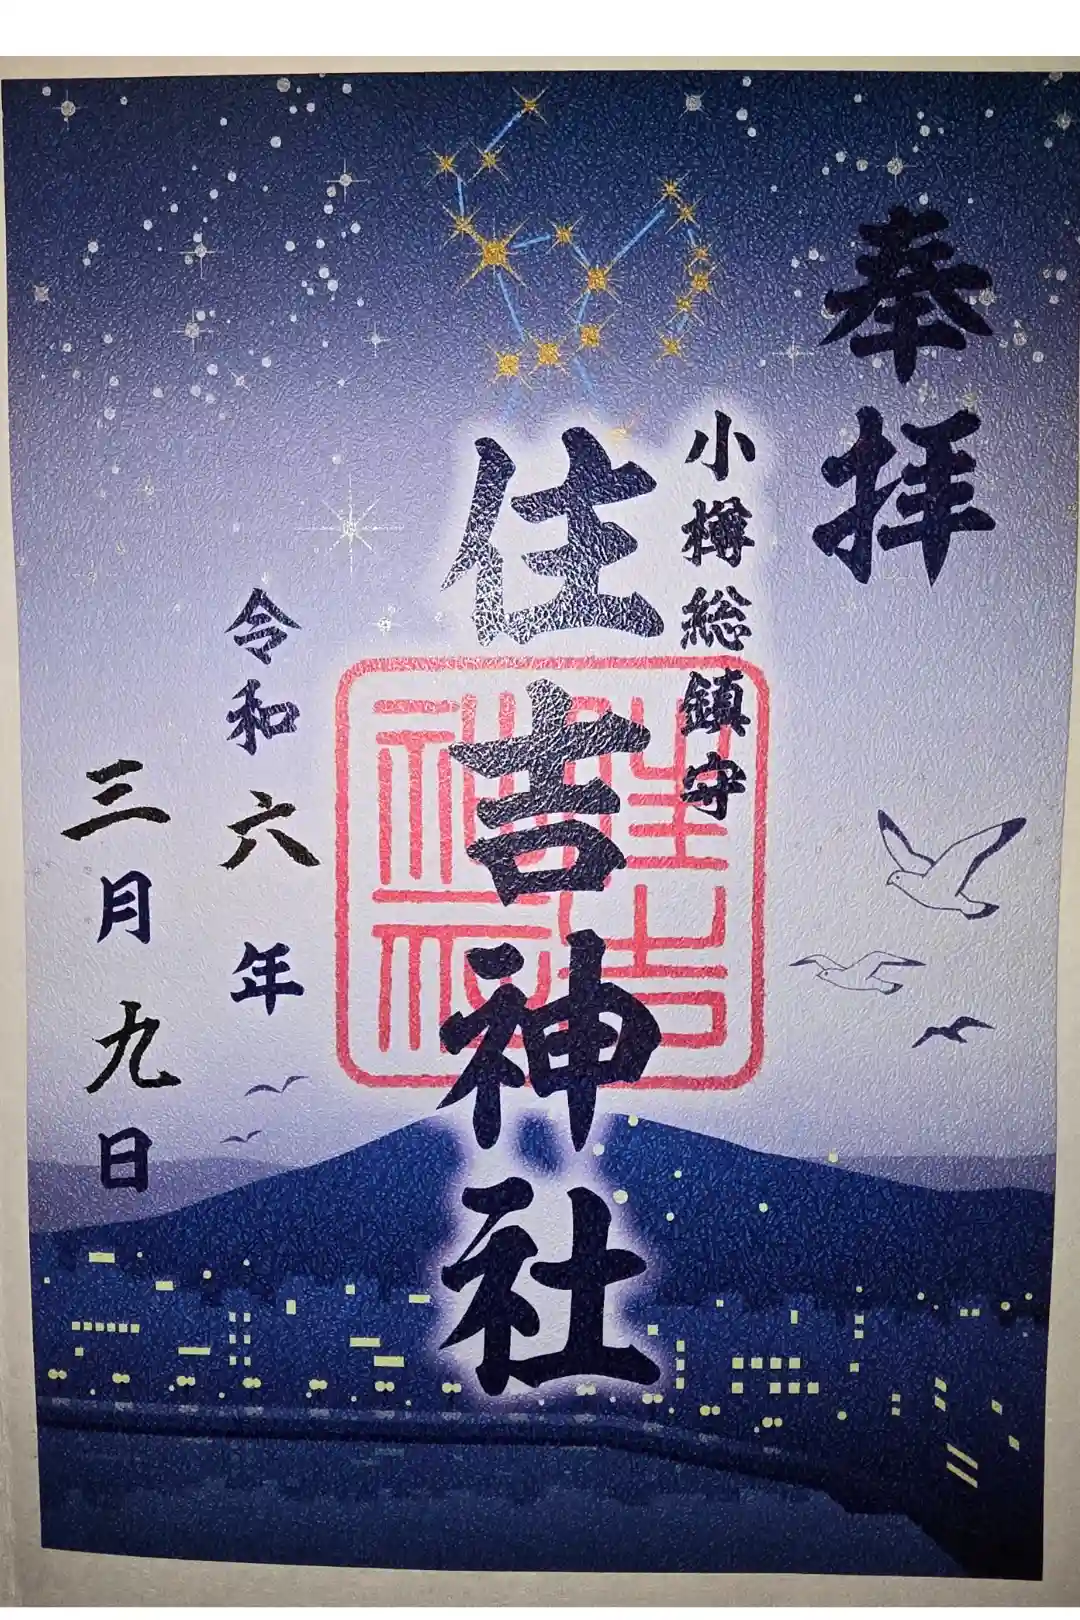 奉拝
小樽総鎮守
住吉神社
住吉神社
令和六年
三月九日